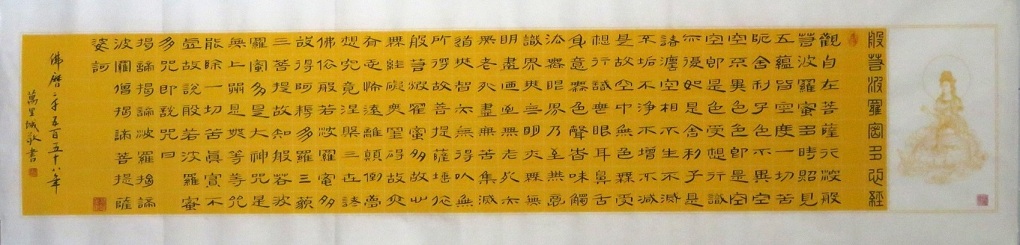 般若波羅蜜多心經
觀自在菩薩行深般
若波羅蜜多時照見
五蘊皆空度一切苦
厄舍利子色不異空
空不異色色即是空
空即是色受想行識
亦復如是舍利子是
諸法空相不生不滅
不垢不淨不增不減
是故空中無色無受
想行識無眼耳鼻舌
身意無色聲香味觸
法無眼界乃至無意
識界無無明亦無無
明盡乃至無老死亦
無老死盡無苦集滅
道無智亦無得以無
所得故菩提薩埵依
般若波羅蜜多故心
無罣礙無罣礙故無
有恐怖遠離顛倒夢
想究竟涅槃三世諸
佛依般若波羅蜜多
故得阿耨多羅三藐
三菩提故知般若波
羅蜜多是大神咒是
無上咒是無等等咒
能除一切苦真實不
虛故說般若波羅蜜
多咒即說咒曰
揭諦揭諦波羅揭諦
波羅僧揭諦菩提薩
婆訶
佛曆二千五百五十八年
萬里城敬書